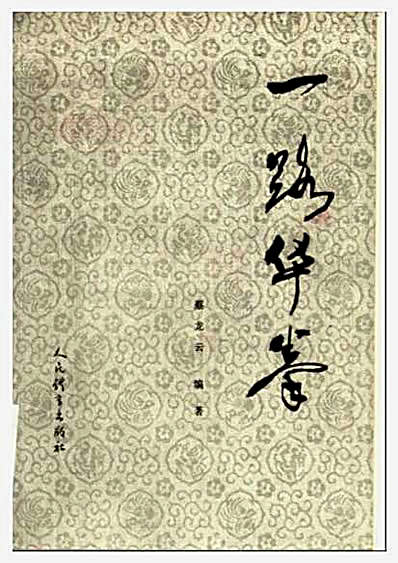 一路华拳
蔡龙云 编著
人民体育出版社